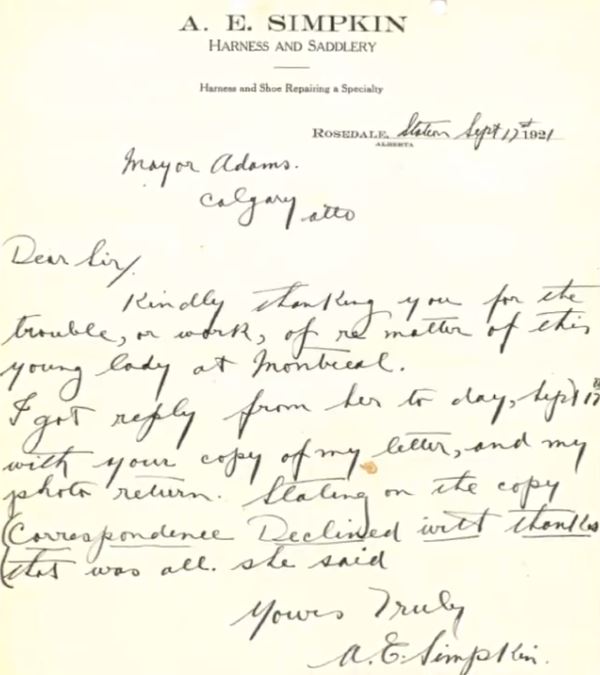 A. E. SIMPKIN
HARNESS AND SADDLERY
Harness and Shoe Repairing a Specialty
ROSEDALE, Station Sept 17st 1921
ALBERTA
Mayor Adams.
Calgary alto
Dear Sir/
Kindly thanking you for the
trouble, or work, of re matter of this
young lady at Montreal.
I got reply from her to day, Sept 17
with your copy of my letter, and my
photo return. Stating on the copy
(Correspondence Declined with thanks
that was all. she said
Yours Truly
A. E. Simpkin.